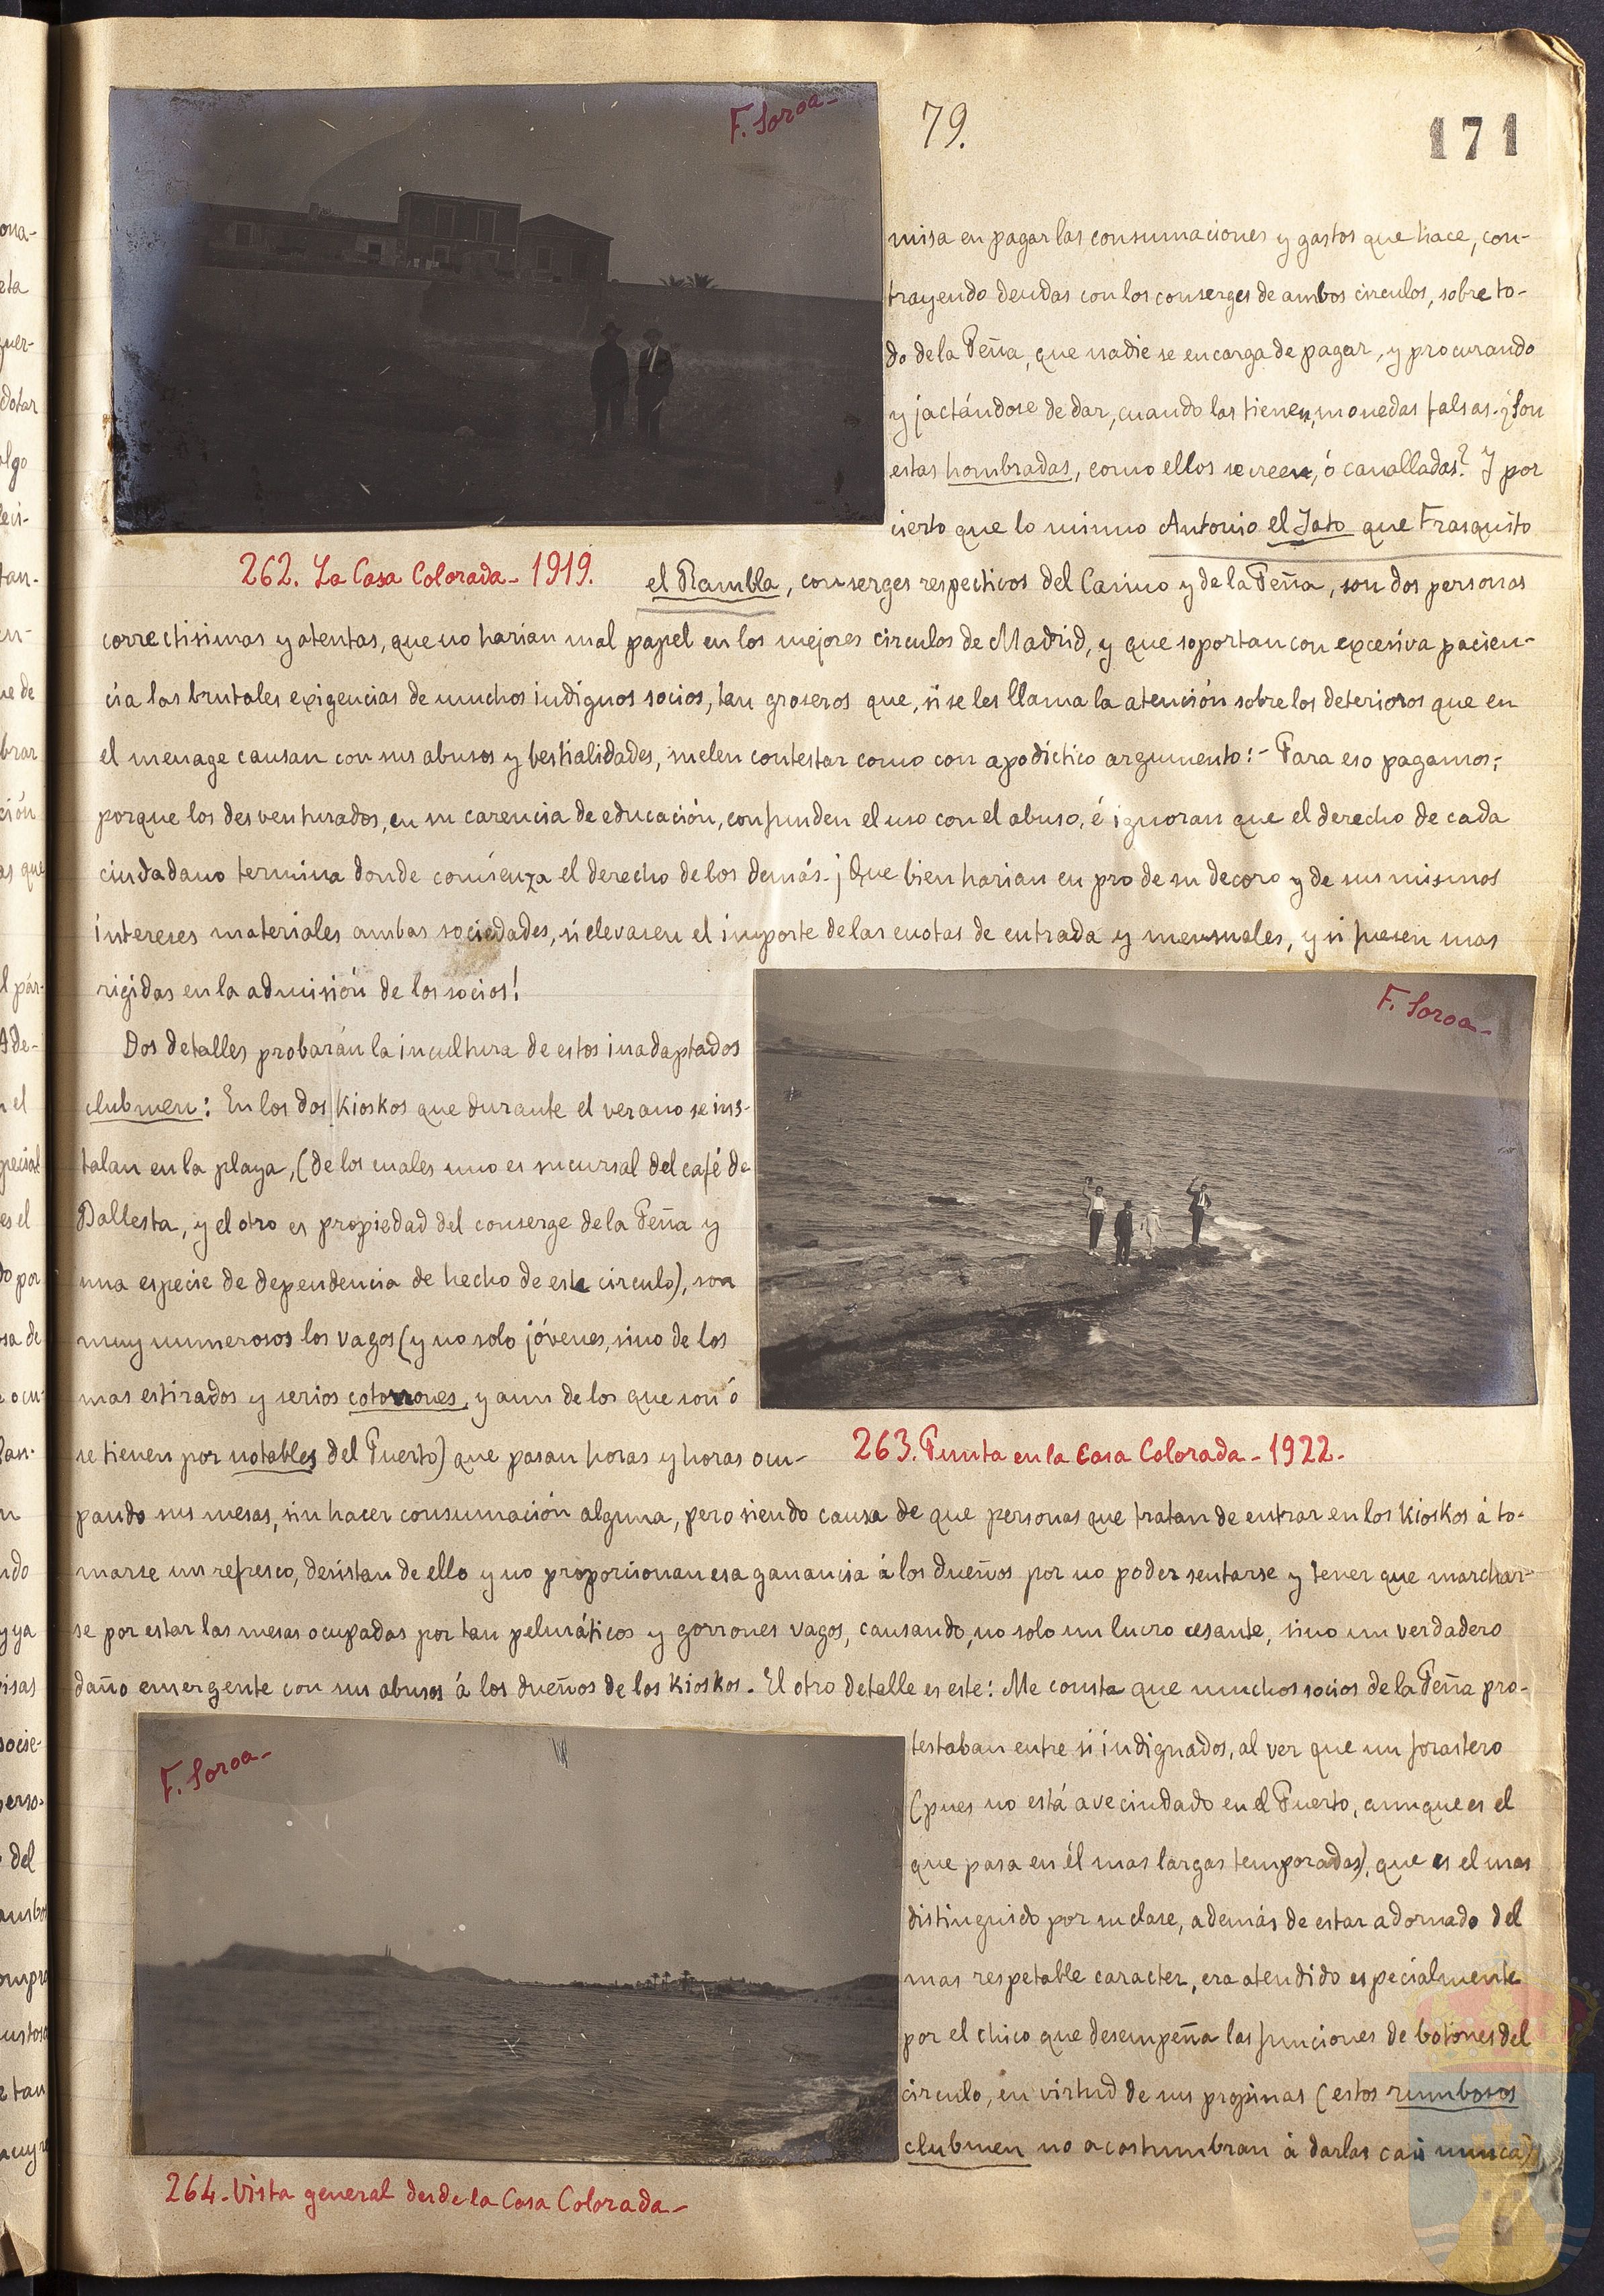 F. Soroa-
79.
171
misa en pagar las consumaciones y gastos que hace, con-
trayendo deudas con los conserges de ambos circulos, sobre to-
do de la Peña, que nadie se encarga de pagar, y procurando
y jactándose de dar, cuando las tienen, monedas falsas. ¿Son
estas hombradas, como ellos se creen, ó canalladas? Y por
cierto que lo mismo Antonio el Jato que Frasquito
262. La Casa Colorada- 1919.
el Rambla, conserges respectivos del Casino y de la Peña, son dos personas
correctisimas y atentas, que no harian mal papel en los mejores circulos de Madrid, y que soportan con excesiva pacien-
cia las brutales exigencias de muchos indignos socios, tan groseros que, si se les llama la atención sobre los deterioros que en
el menage causan con sus abusos y bestialidades, suelen contestar como con apodíctico argumento:- Para eso pagamos;
porque los desventurados, en su carencia de educación, confunden el uso con el abuso, é ignoran que el derecho de cada
ciudadano termina donde comienza el derecho de los demás. ¡Que bien harian en pro de su decoro y de sus mismos
intereses materiales ambas sociedades, si elevasen el importe de las cuotas de entrada y mensuales, y si fuesen mas
rigidas en la admisión de los socios!
F. Soroa-
Dos detalles probarán la incultura de estos inadaptados
clubmen: En los dos Kioskos que durante el verano se ins-
talan en la playa, (de los cuales uno es sucursal del café de
Ballesta, y el otro es propiedad del conserge de la Peña y
una especie de dependencia de hecho de este circulo), son
muy numerosos los vagos (y no solo jóvenes, sino de los
mas estirados y serios cotorrones, y aun de los que son ó
se tienen por notables del Puerto) que pasan horas y horas ocu-
263. Punta en la Casa Colorada- 1922-
pando sus mesas, sin hacer consumación alguna, pero siendo causa de que personas que tratan de entrar en los Kioskos á to-
marse un refresco, desistan de ello y no proporcionan esa ganancia á los dueños por no poder sentarse y tener que marchar-
se por estar las mesas ocupadas por tan pelmáticos y gorrones vagos, causando, no solo un lucro cesante, sino un verdadero
daño emergente con sus abusos á los dueños de los Kioskos. El otro detalle es este: Me consta que muchos socios de la Peña pro-
F. Soroa-
testaban entre si indignados, al ver que un forastero
(pues no está avecindado en el Puerto, aunque es el
que pasa en él mas largas temporadas), que es el mas
distinguido por su clase, además de estar adornado del
mas respetable caracter, era atendido especialmente
por el chico que desempeña las funciones de botones del
circulo, en virtud de sus propinas (estos rumbosos
clubmen no acostumbran á darlas casi nunca)
264. Vista general desde la Casa Colorada-